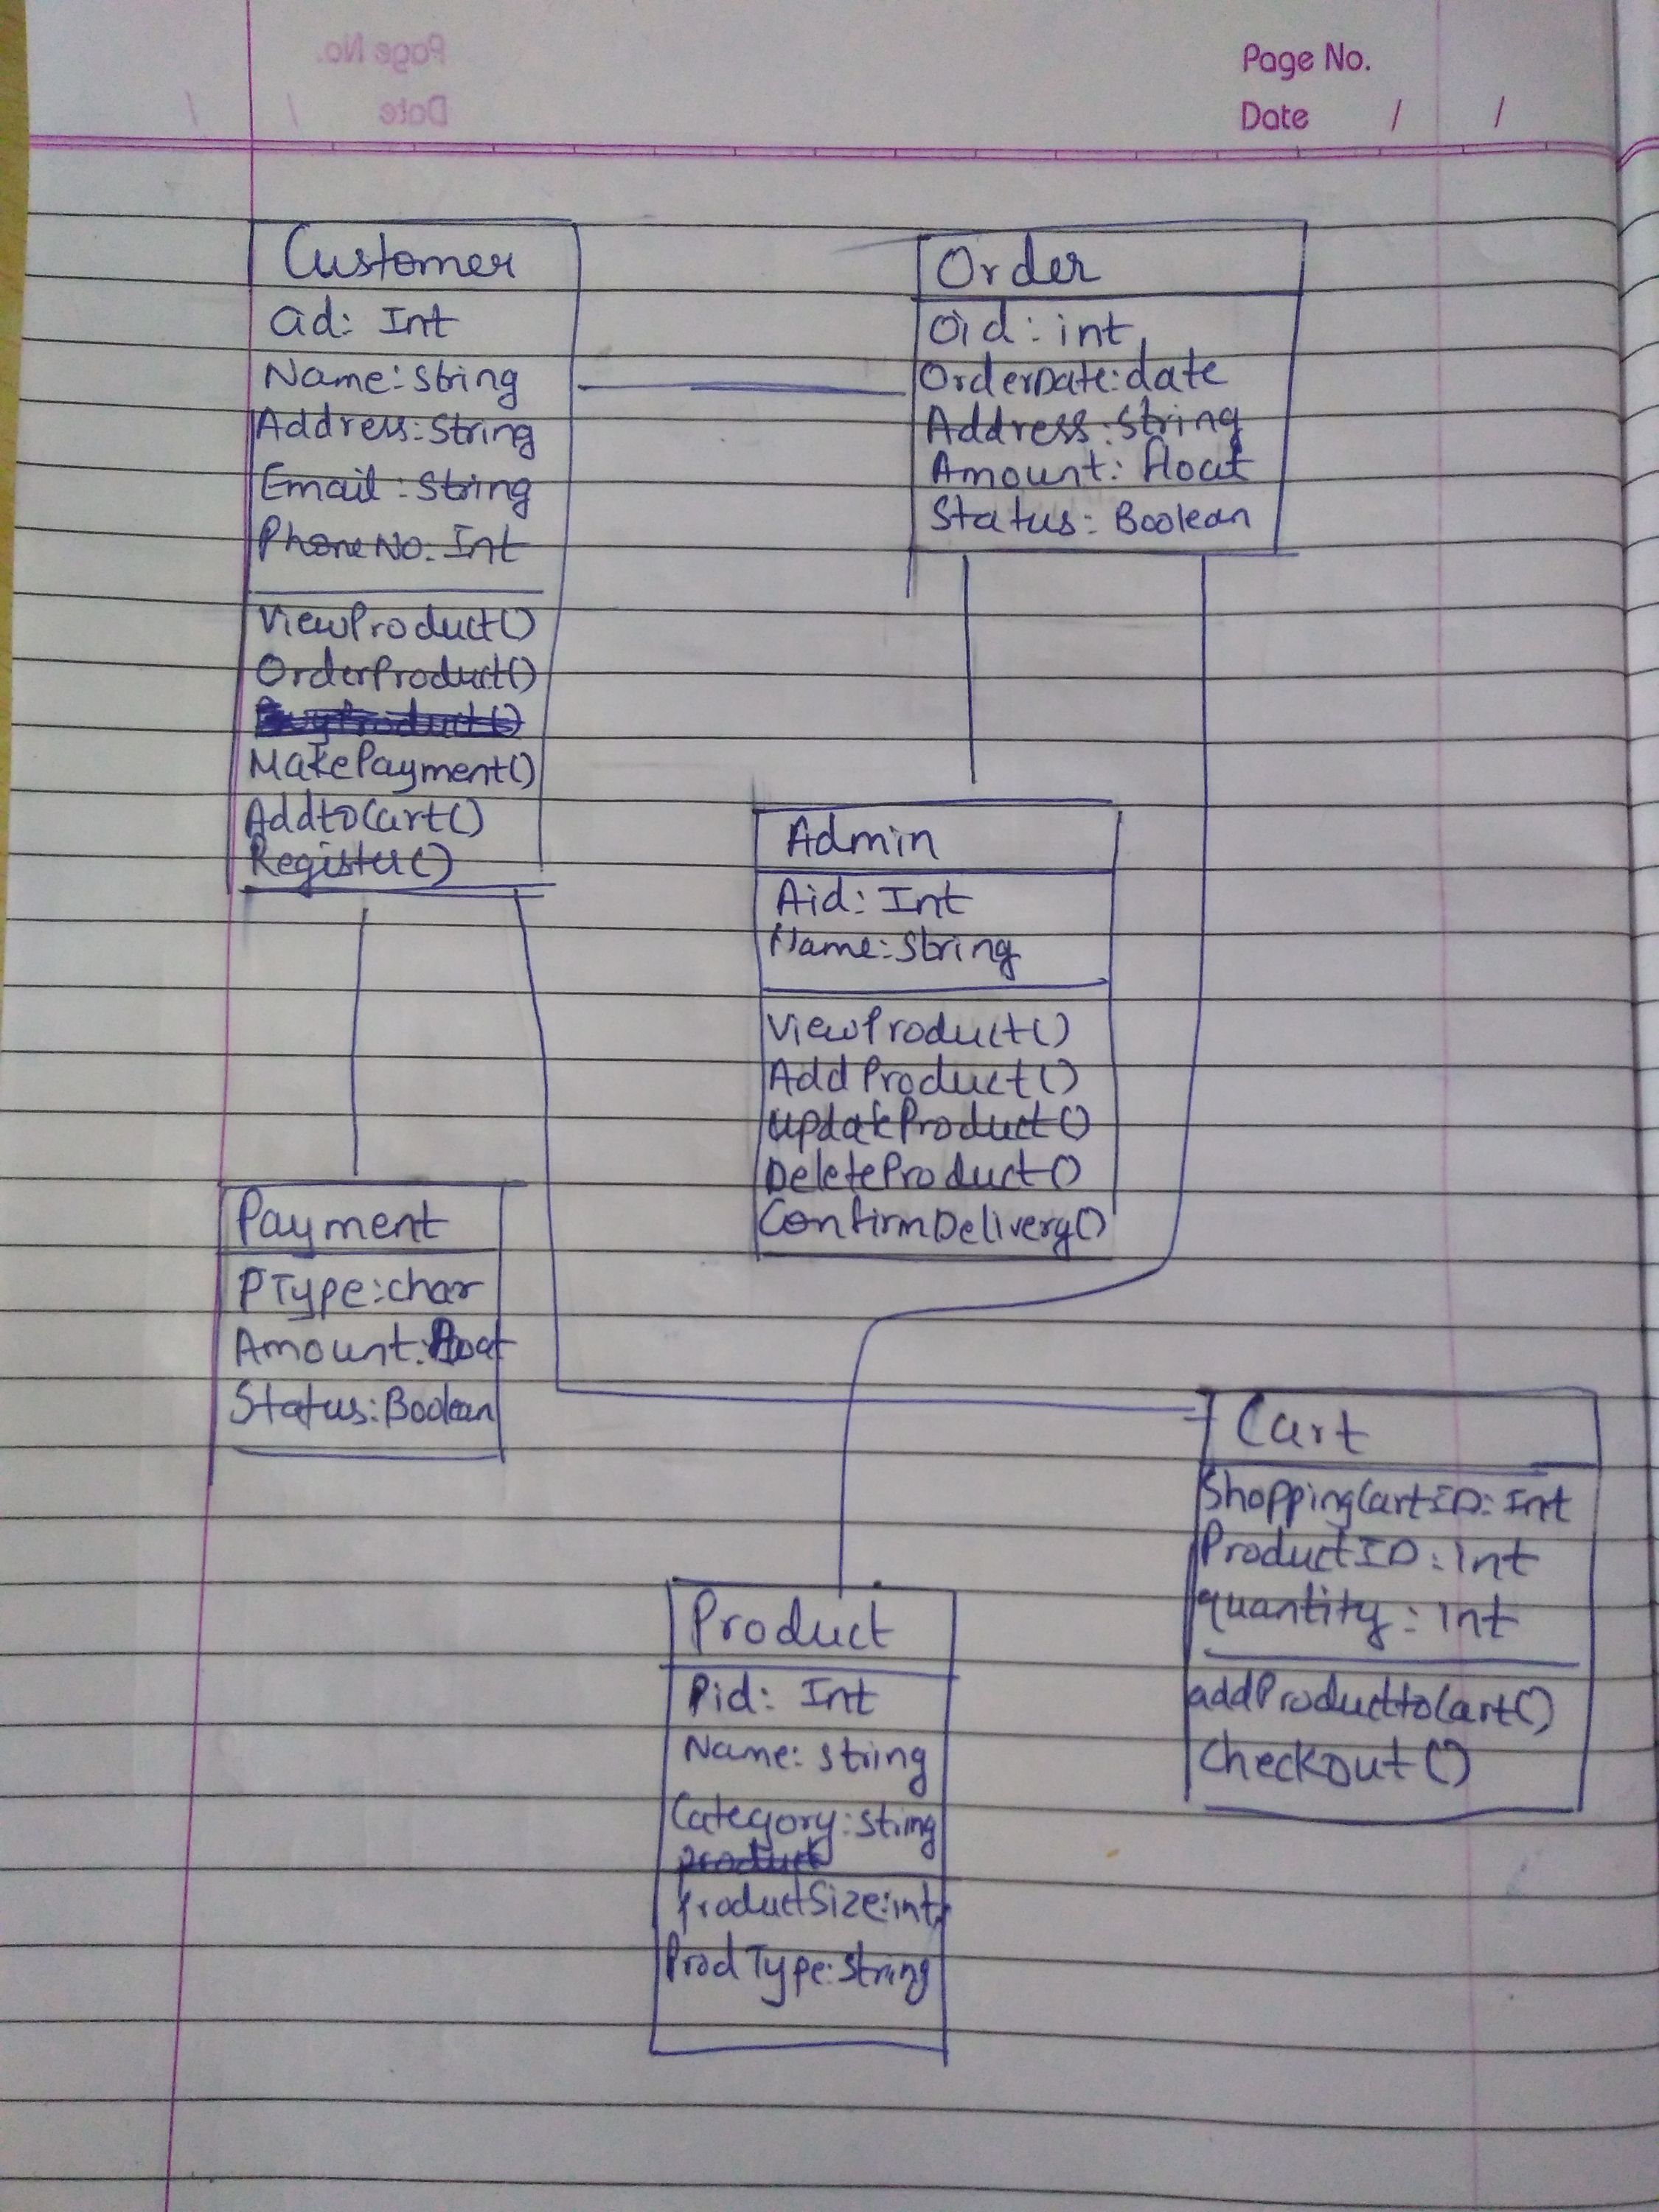 Page No.
Date / /
Customer
Cid: Int
Name: String
Address: String
Email: String
PhoneNo: Int
ViewProduct()
OrderProduct()
MakePayment()
AddtoCart()
Register()
Order
Oid: int
OrderDate: date
Address: String
Amount: float
Status: Boolean
Admin
Aid: Int
Name: String
ViewProduct()
AddProduct()
UpdateProduct()
DeleteProduct()
ConfirmDelivery()
Payment
PType: char
Amount: float
Status: Boolean
Cart
ShoppingCartID: Int
ProductID: Int
quantity: Int
addProducttoCart()
Checkout()
Product
Pid: Int
Name: String
Category: String
ProductSize: int
ProdType: String